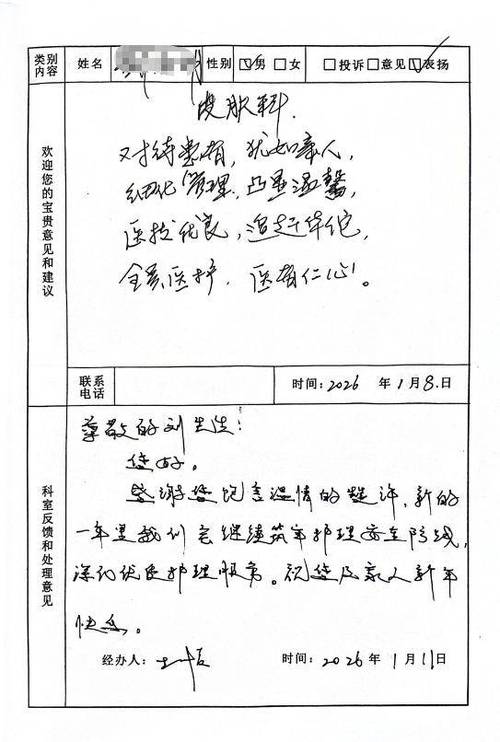 类别内容 姓名 性别 ☑男 □女 □投诉□意见☑表扬
欢迎您的宝贵意见和建议
皮肤科.
对待患者,犹如亲人,
细化管理,凸显温馨,
医技优良,追赶华佗,
全景医护,医有仁心。
联系电话 时间:2026 年 1 月 8 日
科室反馈和处理意见
尊敬的刘先生:
您好。
感谢您饱含温情的赞许,新的
一年里我们会继续筑牢护理安全防线,
深化优质护理服务。祝您及家人新年
快乐。
经办人: 时间:2026 年 1 月 11 日